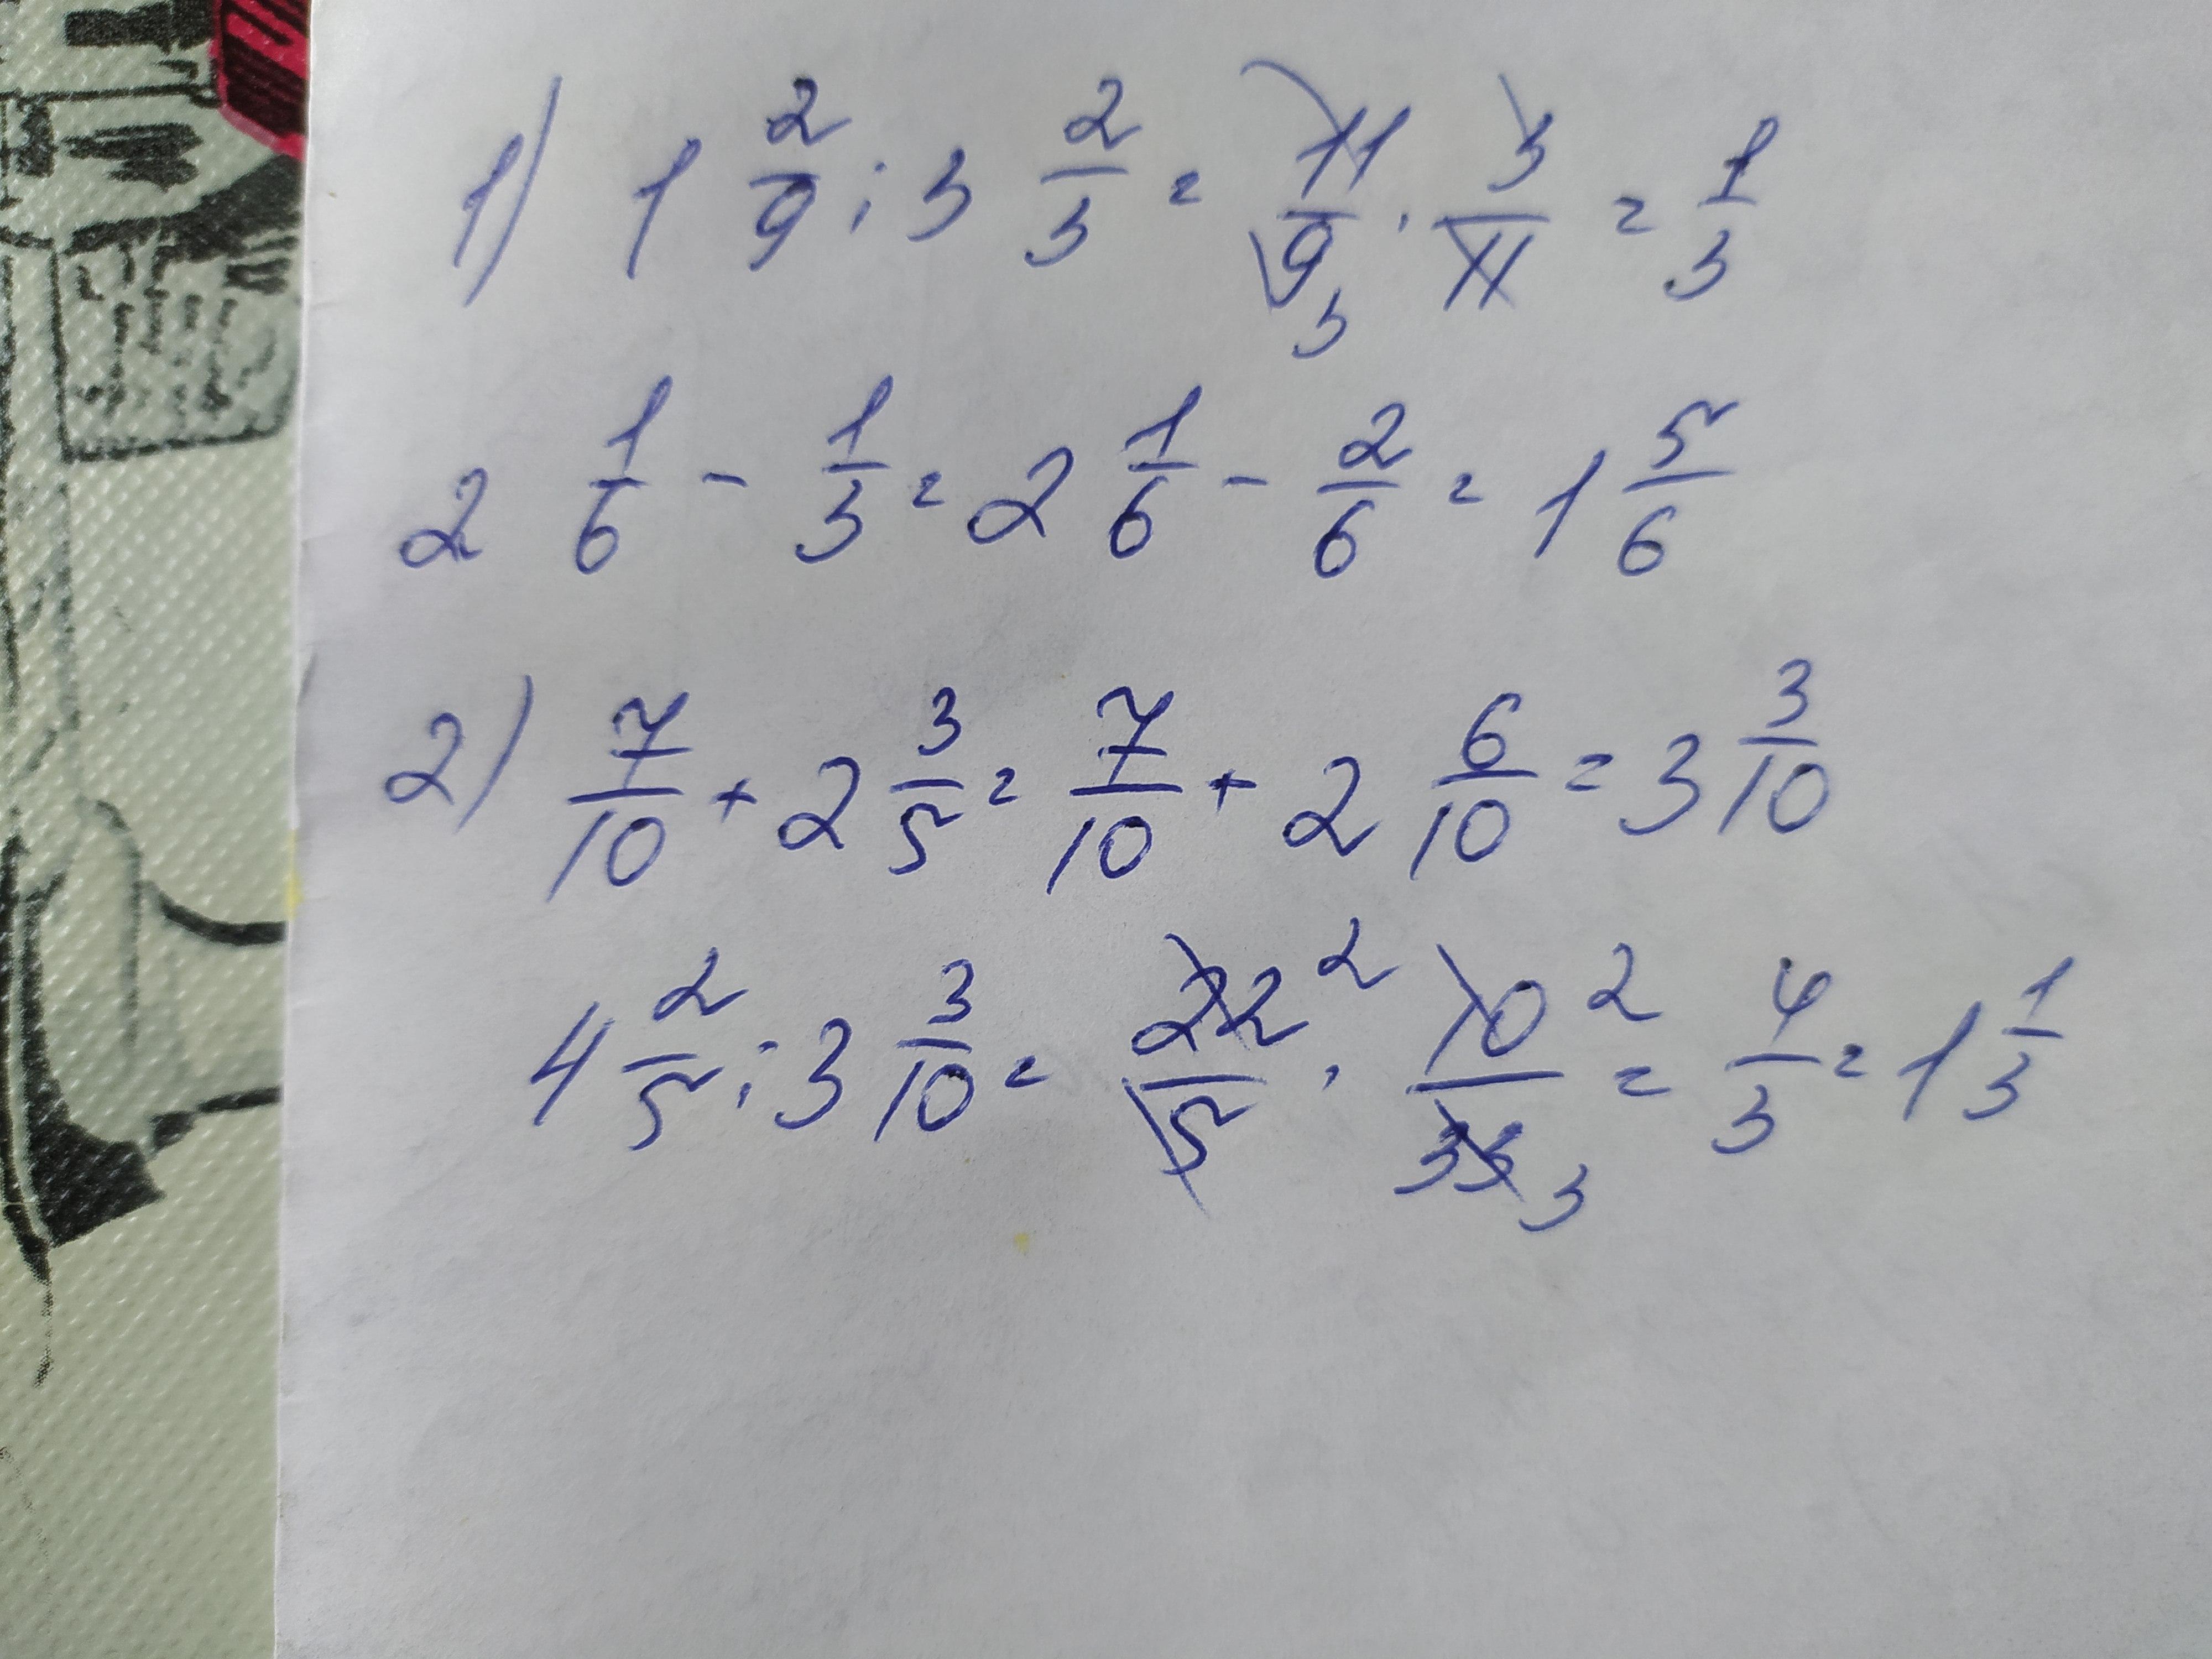 1) 1 2/9 : 3 2/3 = 11/9 3 · 3/11 = 1/3
2 1/6 - 1/3 = 2 1/6 - 2/6 = 1 5/6
2) 7/10 + 2 3/5 = 7/10 + 2 6/10 = 3 3/10
4 2/5 : 3 3/10 = 22 2/5 · 10 2/33 3 = 4/3 = 1 1/3